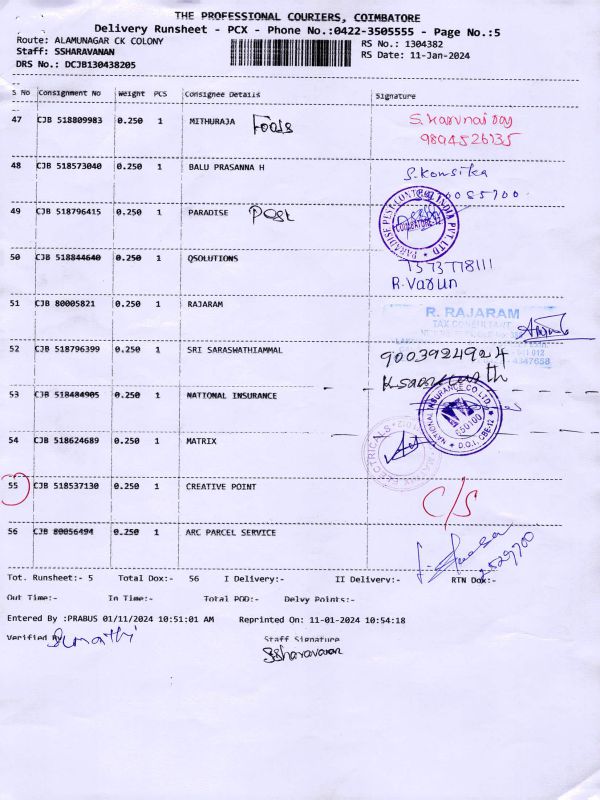 THE PROFESSIONAL COURIERS, COIMBATORE
Delivery Runsheet - PCX - Phone No.:0422-3505555 - Page No.:5
Route: ALAMUNAGAR CK COLONY RS No.: 1304382
Staff: SSHARAVANAN RS Date: 11-Jan-2024
DRS No.: DCJB130438205
S No Consignment No Weight PCS Consignee Details Signature
47 CJB 518809983 0.250 1 MITHURAJA
9894526735
48 CJB 518573040 0.250 1 BALU PRASANNA H S.Konsika
49 CJB 518796415 0.250 1 PARADISE Pest
PARADISE PEST CONTROL INDIA PVT. LTD
COIMBATORE-12
50 CJB 518844640 0.250 1 QSOLUTIONS
R.Varun
51 CJB 80005821 0.250 1 RAJARAM R. RAJARAM
TAX CONSULTANT
52 CJB 518796399 0.250 1 SRI SARASWATHIAMMAL 9003924924
53 CJB 518484905 0.250 1 NATIONAL INSURANCE
NATIONAL INSURANCE CO LTD
D.O.I, CBE-12
54 CJB 518624689 0.250 1 MATRIX
ELECTRICALS
55 CJB 518537130 0.250 1 CREATIVE POINT C/S
56 CJB 80056494 0.250 1 ARC PARCEL SERVICE
Tot. Runsheet:- 5 Total Dox:- 56 I Delivery:- II Delivery:- RTN Dox:-
Out Time:- In Time:- Total POD:- Delvy Points:-
Entered By :PRABUS 01/11/2024 10:51:01 AM Reprinted On: 11-01-2024 10:54:18
Verified By Sumathi Staff Signature
SSharavanan